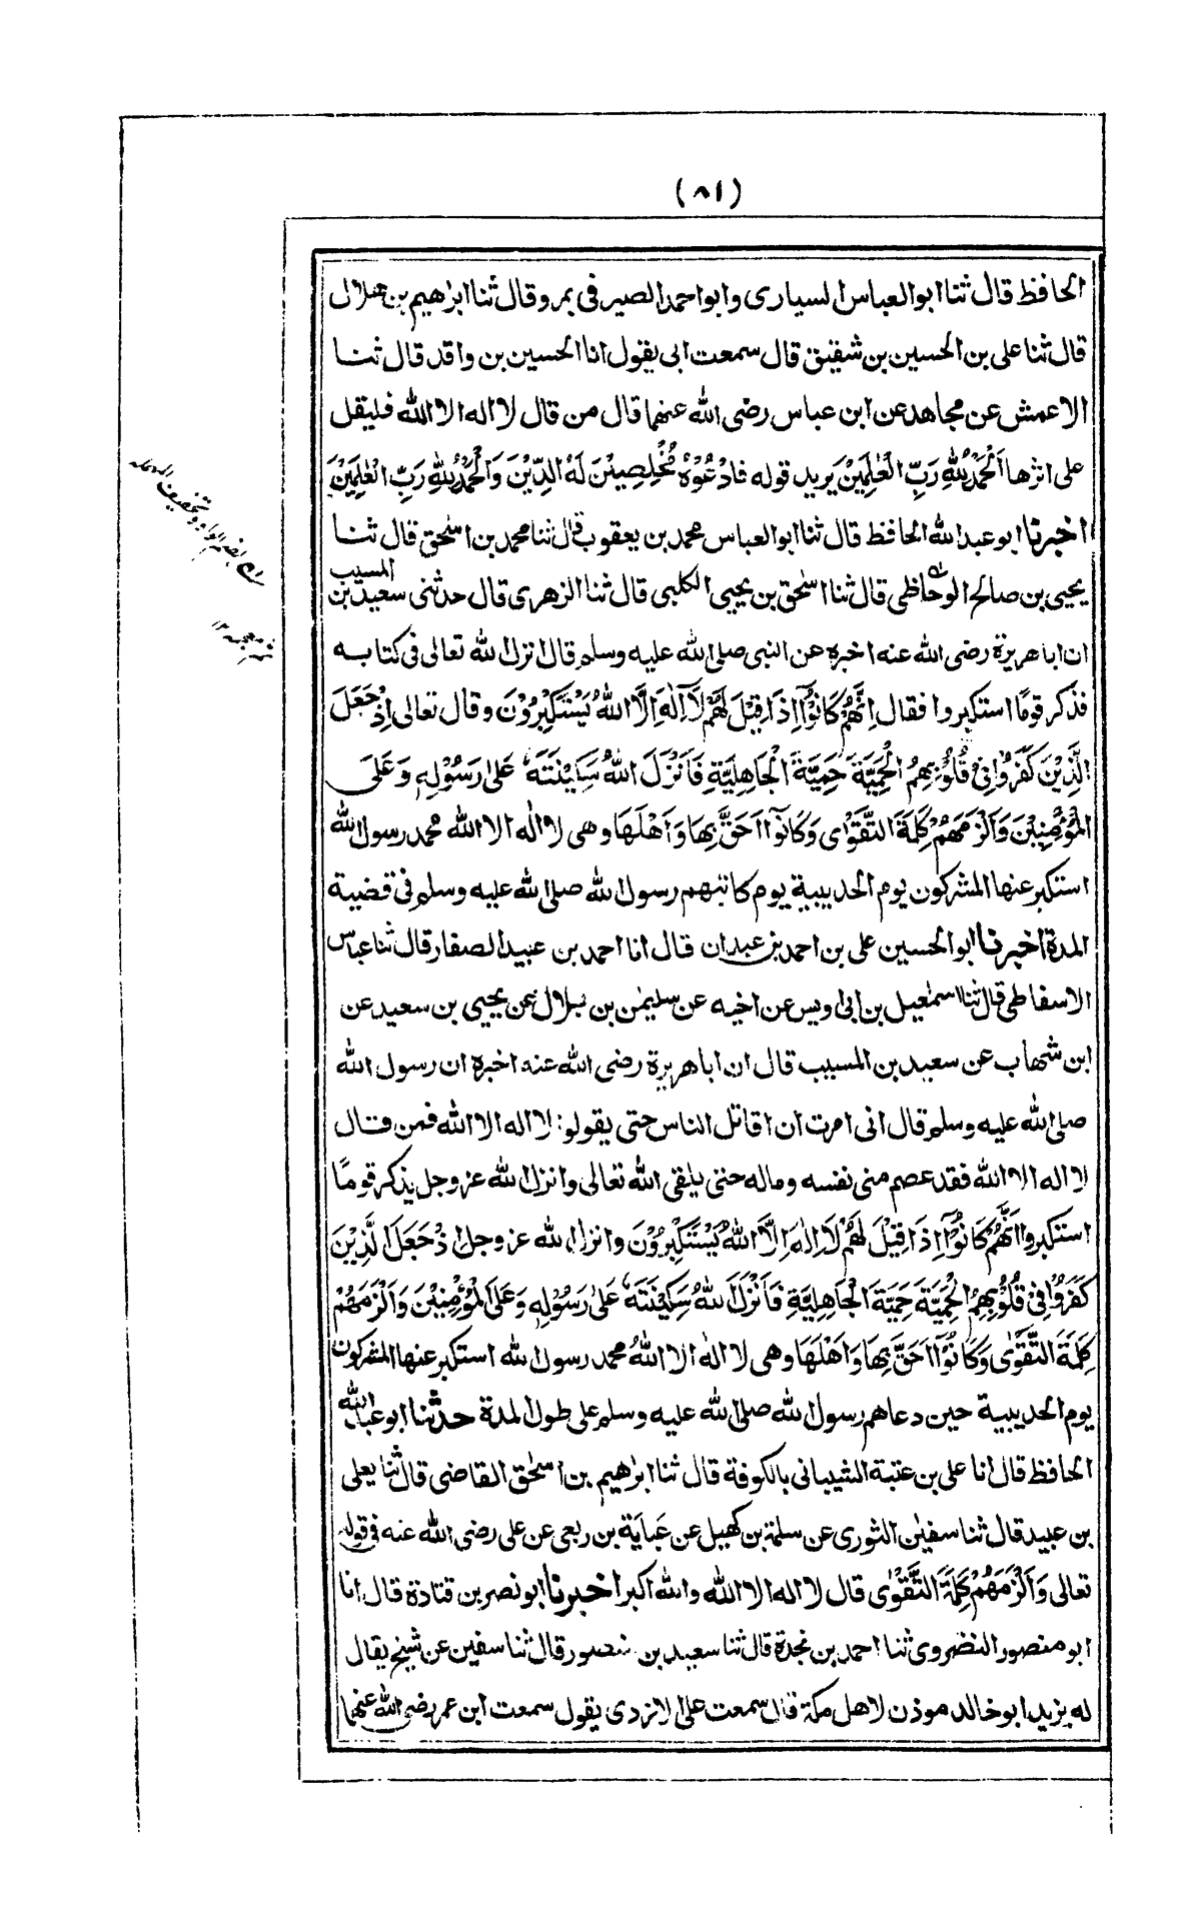 (٨١)
الحافظ قال ثنا ابو العباس السيارى وابو احمد الصيرفى بمرو قال ثنا ابراهيم بن هلال
قال ثنا على بن الحسين بن شقيق قال سمعت ابى يقول انا الحسين بن واقد قال ثنا
الاعمش عن مجاهد عن ابن عباس رضى الله عنهما قال من قال لا اله الا الله فليقل
على اثرها اَلْحَمْدُ لِلّٰهِ رَبِّ الْعٰلَمِيْنَ يريد قوله فَادْعُوْهُ مُخْلِصِيْنَ لَهُ الدِّيْنَ وَالْحَمْدُ لِلّٰهِ رَبِّ الْعٰلَمِيْنَ
اخبرنا ابو عبد الله الحافظ قال ثنا ابو العباس محمد بن يعقوب قال ثنا محمد بن اسحٰق قال ثنا
يحيى بن صالح الوحاظى قال ثنا اسحٰق بن يحيى الكلبى قال ثنا الزهرى قال حدثنى سعيد بن المسيب
ان ابا هريرة رضى الله عنه اخبره عن النبى صلى الله عليه وسلم قال انزل الله تعالى فى كتابه
فذكر قومًا استكبروا فقال اِنَّهُمْ كَانُوْٓا اِذَا قِيْلَ لَهُمْ لَآ اِلٰهَ اِلَّا اللّٰهُ يَسْتَكْبِرُوْنَ وقال تعالى اِذْ جَعَلَ
الَّذِيْنَ كَفَرُوْا فِيْ قُلُوْبِهِمُ الْحَمِيَّةَ حَمِيَّةَ الْجَاهِلِيَّةِ فَاَنْزَلَ اللّٰهُ سَكِيْنَتَهٗ عَلٰى رَسُوْلِهٖ وَعَلَى
الْمُؤْمِنِيْنَ وَاَلْزَمَهُمْ كَلِمَةَ التَّقْوٰى وَكَانُوْٓا اَحَقَّ بِهَا وَاَهْلَهَا وهى لا اله الا الله محمد رسول الله
استكبر عنها المشركون يوم الحديبية يوم كاتبهم رسول الله صلى الله عليه وسلم فى قضية
المدة اخبرنا ابو الحسين على بن احمد بن عبدان قال انا احمد بن عبيد الصفار قال ثنا عباس
الاسفاطى قال ثنا اسمٰعيل بن ابى اويس عن اخيه عن سليمٰن بن بلال عن يحيى بن سعيد عن
ابن شهاب عن سعيد بن المسيب قال ان ابا هريرة رضى الله عنه اخبره ان رسول الله
صلى الله عليه وسلم قال انى امرت ان اقاتل الناس حتى يقولوا لا اله الا الله فمن قال
لا اله الا الله فقد عصم منى نفسه وماله حتى يلقى الله تعالى وانزل الله عز وجل يذكر قومًا
استكبروا اِنَّهُمْ كَانُوْٓا اِذَا قِيْلَ لَهُمْ لَا اِلٰهَ اِلَّا اللّٰهُ يَسْتَكْبِرُوْنَ وانزل الله عز وجل اِذْ جَعَلَ الَّذِيْنَ
كَفَرُوْا فِيْ قُلُوْبِهِمُ الْحَمِيَّةَ حَمِيَّةَ الْجَاهِلِيَّةِ فَاَنْزَلَ اللّٰهُ سَكِيْنَتَهٗ عَلٰى رَسُوْلِهٖ وَعَلَى الْمُؤْمِنِيْنَ وَاَلْزَمَهُمْ
كَلِمَةَ التَّقْوٰى وَكَانُوْٓا اَحَقَّ بِهَا وَاَهْلَهَا وهى لا اله الا اللهُ محمد رسول الله استكبر عنها المشركون
يوم الحديبية حين دعاهم رسول الله صلى الله عليه وسلم على طول المدة حدثنا ابو عبد الله
الحافظ قال انا على بن عتبة الشيبانى بالكوفة قال ثنا ابراهيم بن اسحٰق القاضى قال ثنا يعلى
بن عبيد قال ثنا سفيٰن الثورى عن سلمة بن كهيل عن عَبايَة بن ربعى عن على رضى الله عنه فى قوله
تعالى وَاَلْزَمَهُمْ كَلِمَةَ التَّقْوٰى قال لا اله الا الله والله اكبر اخبرنا ابو نصر بن قتادة قال انا
ابو منصور النضروى ثنا احمد بن نجدة قال ثنا سعيد بن منصور قال ثنا سفين عن شيخ يقال
له يزيد ابو خالد موذن لاهل مكة قال سمعت على الازدى يقول سمعت ابن عمر رضى الله عنهما
بضم الواو وتخفيف المهملة